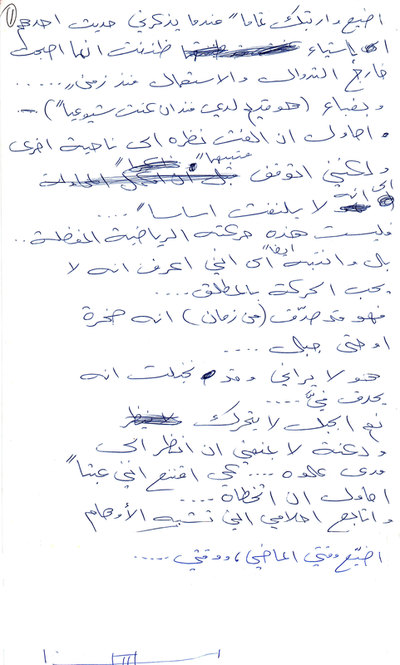 1
اضيع وارتبك تماما" عندما يذكرني حديث احدهم
الى باستياء ظننت انها اصبحت
خارج التداول والاستعمال منذ زمن......
وبغباء (هو قديم لدي منذ ان كنت شيوعيا")...
احاول ان الفت نظره الى ناحية اخرى
ولكنني اتوقف منتبها"
الى انه لا يلتفت اساسا"....
وليست هذه حركته الرياضية المفضلة...
بل وانتبه ايضا" الى انني اعرف انه لا
يحب الحركة بالمطلق....
فهو قد صدّق (من زمان) انه صخرة
او حتى جبل.....
هو لا يراني وقد تخيلت انه
يحدق فيّ.....
نعم الجبل لا يتحرك
ودعنة لا يمنعني ان انظر الى
مدى علوه.... كي اقتنع انني عبثا"
احاول ان اتخطاه....
واتابع احلامي التي تشبه الأوهام
اضيّع وقتي الماضي، ووقتي.....